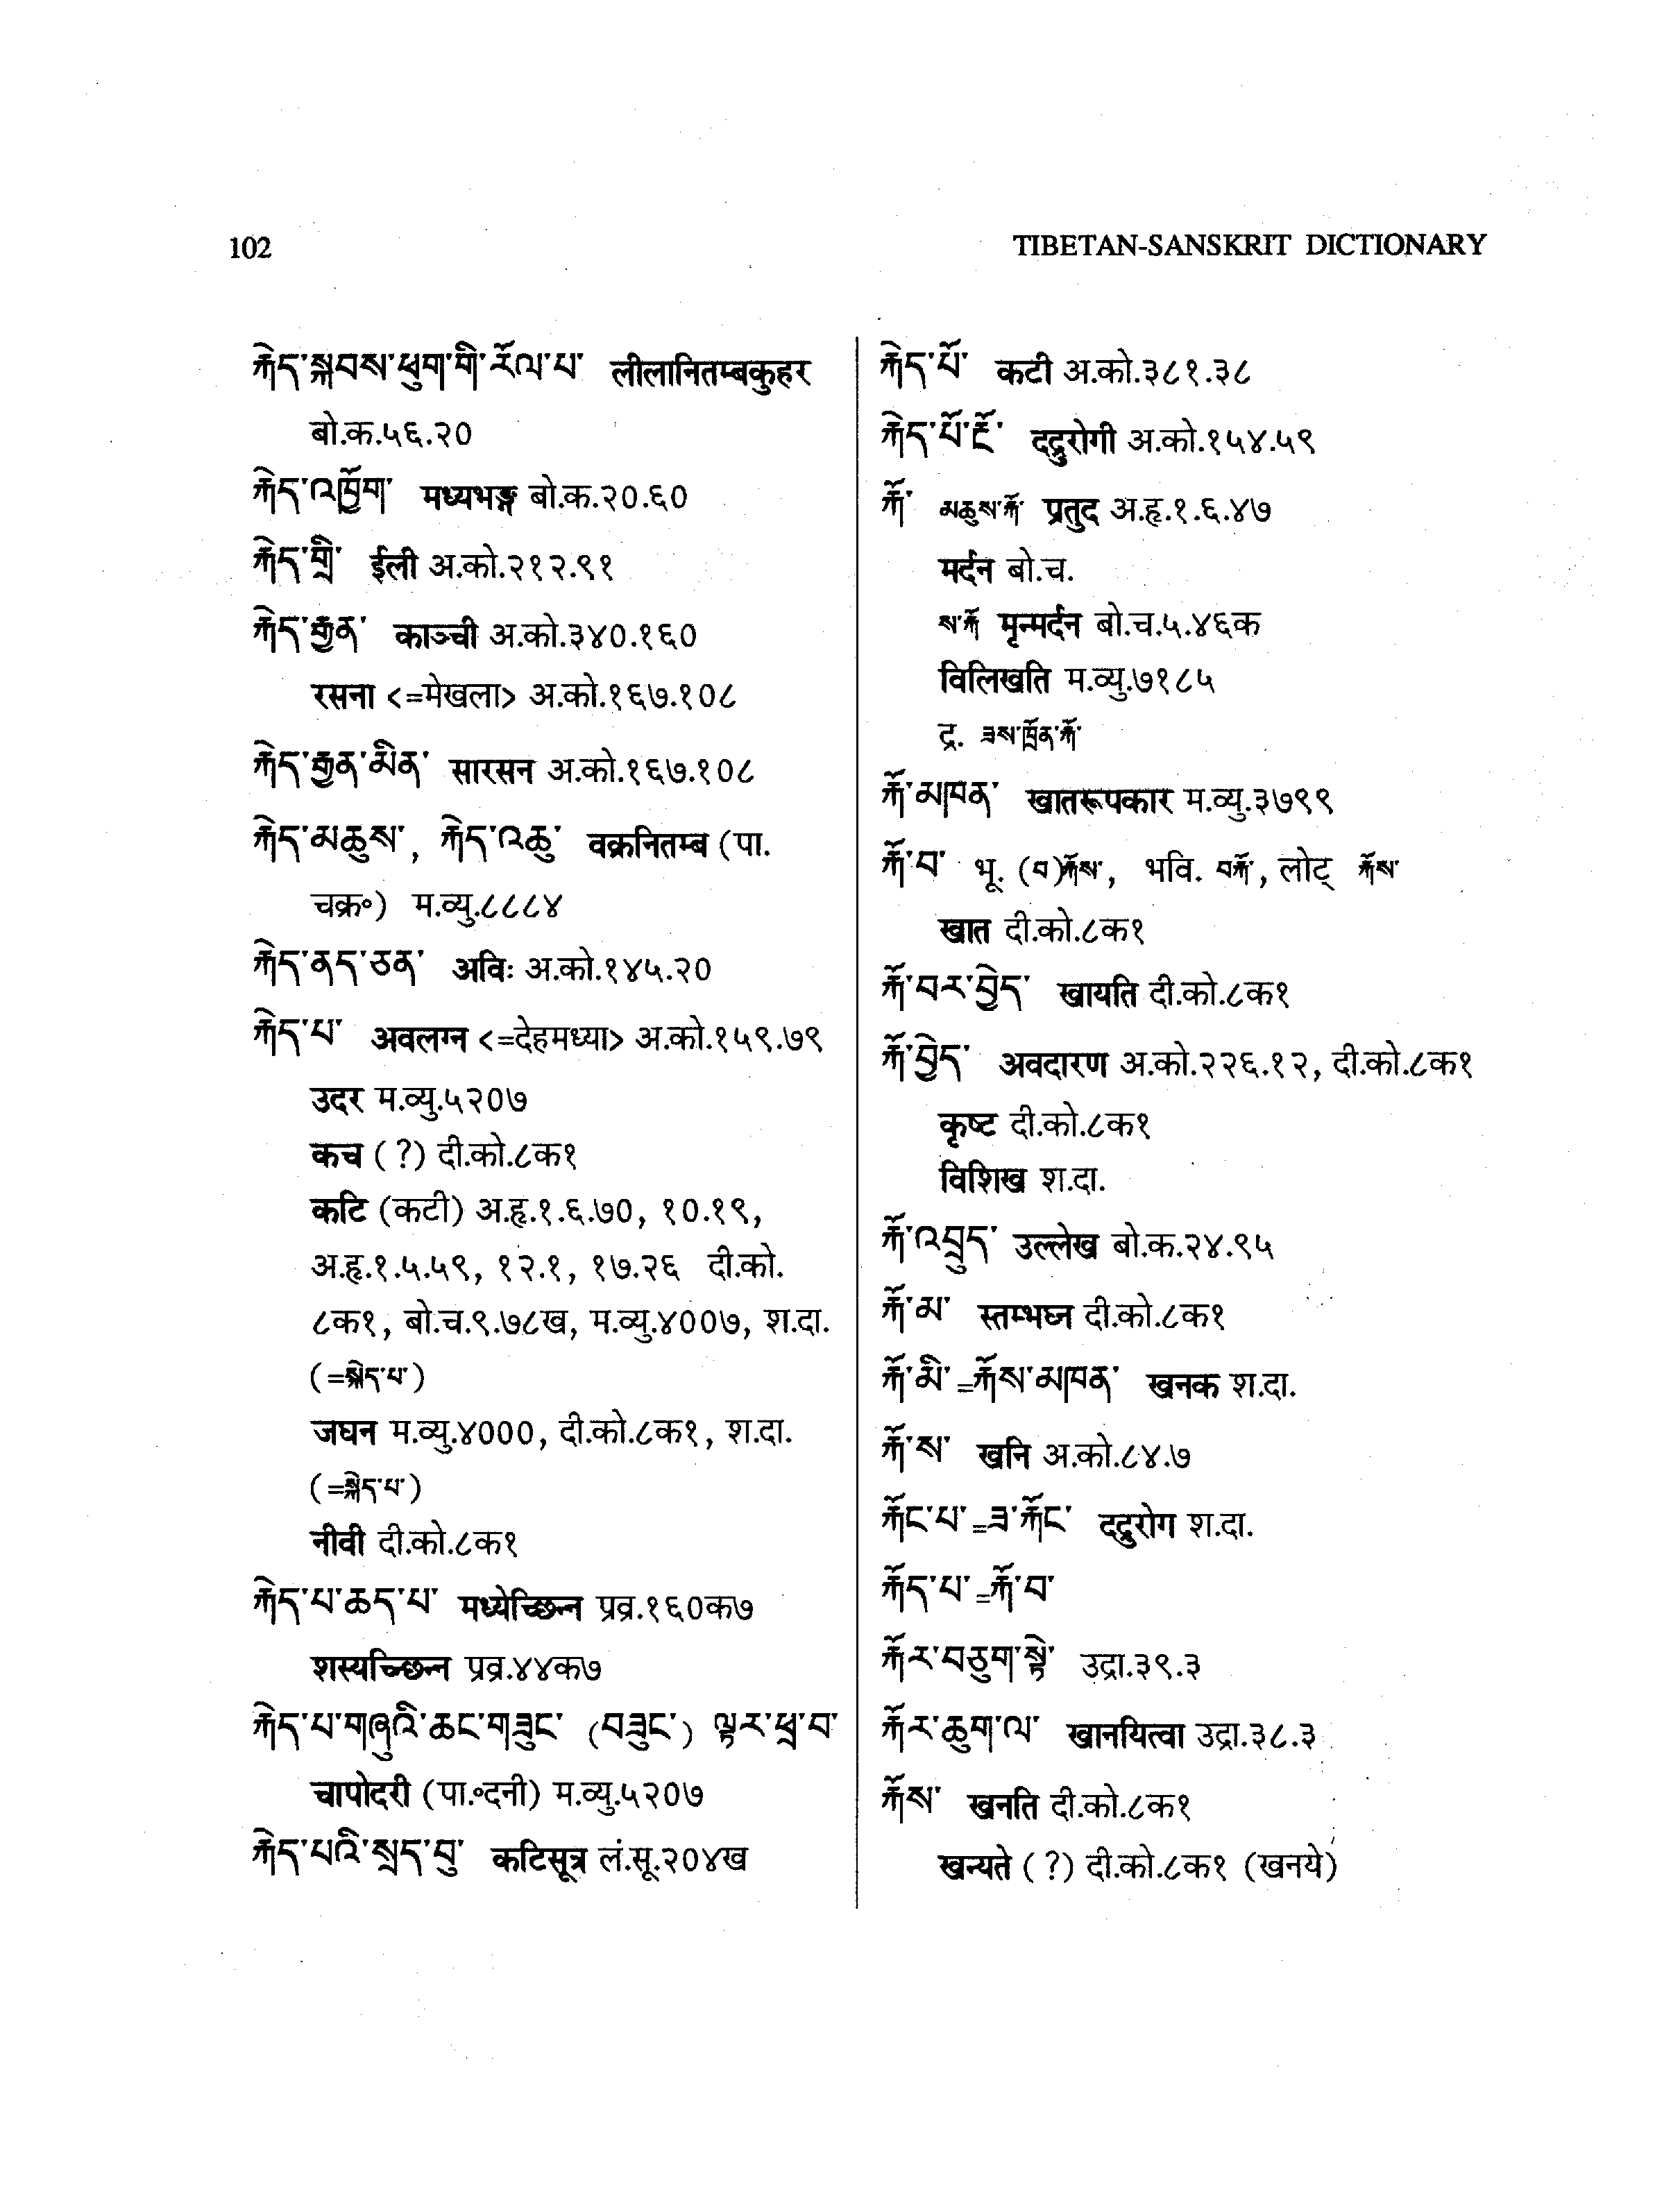 102
TIBETAN-SANSKRIT DICTIONARY
རྐེད་སྐབས་ཕུག་གི་རོལ་པ་ लीलानितम्बकुहर
बो.क.५६.२०
རྐེད་འཁྱོག་ मध्यभङ्ग बो.क.२०.६०
རྐེད་གྲི་ ईली अ.को.२१२.९१
རྐེད་རྒྱན་ काञ्ची अ.को.३४०.१६०
रसना <=मेखला> अ.को.१६७.१०८
རྐེད་རྒྱན་མིན་ सारसन अ.को.१६७.१०८
རྐེད་མཆུས་, རྐེད་འཆུ་ वक्रनितम्ब (पा.
चक्र॰) म.व्यु.८८८४
རྐེད་ནད་ཅན་ अविः अ.को.१४५.२०
རྐེད་པ་ अवलग्न <=देहमध्या> अ.को.१५९.७९
उदर म.व्यु.५२०७
कच (?) दी.को.८क१
कटि (कटी) अ.हृ.१.६.७०, १०.१९,
अ.हृ.१.५.५९, १२.१, १७.२६ दी.को.
८क१, बो.च.९.७८ख, म.व्यु.४००७, श.दा.
(=སྐེད་པ་)
जघन म.व्यु.४०००, दी.को.८क१, श.दा.
(=སྐེད་པ་)
नीवी दी.को.८क१
རྐེད་པ་ཆད་པ་ मध्येच्छिन्न प्रव्र.१६०क७
शस्यच्छिन्न प्रव्र.४४क७
རྐེད་པ་གཞུའི་ཆང་གཟུང་ (བཟུང་) ལྟར་ཕྲ་བ་
चापोदरी (पा.॰दनी) म.व्यु.५२०७
རྐེད་པའི་སྲད་བུ་ कटिसूत्र लं.सू.२०४ख
རྐེད་པོ་ कटी अ.को.३८१.३८
རྐེད་པོ་ངོ་ दद्रुरोगी अ.को.१५४.५९
རྐོ་ མཆུས་རྐོ་ प्रतुद अ.हृ.१.६.४७
मर्दन बो.च.
ས་རྐོ मृन्मर्दन बो.च.५.४६क
विलिखति म.व्यु.७१८५
द्र. ཟས་ཁྲོན་རྐོ་
རྐོ་མཁན་ खातरूपकार म.व्यु.३७९९
རྐོ་བ་ भू. (བ)རྐོས་, भवि. བརྐོ་, लोट् རྐོས་
खात दी.को.८क१
རྐོ་བར་བྱེད་ खायति दी.को.८क१
རྐོ་བྱེད་ अवदारण अ.को.२२६.१२, दी.को.८क१
कृष्ट दी.को.८क१
विशिख श.दा.
རྐོ་འབྲུད་ उल्लेख बो.क.२४.९५
རྐོ་མ་ स्तम्भघ्न दी.को.८क१
རྐོ་མི་=རྐོས་མཁན་ खनक श.दा.
རྐོ་ས་ खनि अ.को.८४.७
རྐོང་པ་=ཟ་རྐོང་ दद्रुरोग श.दा.
རྐོད་པ་=རྐོ་བ་
རྐོར་བཅུག་སྟེ་ उद्रा.३९.३
རྐོར་ཆུག་ལ་ खानयित्वा उद्रा.३८.३
རྐོས་ खनति दी.को.८क१
खन्यते (?) दी.को.८क१ (खनये)